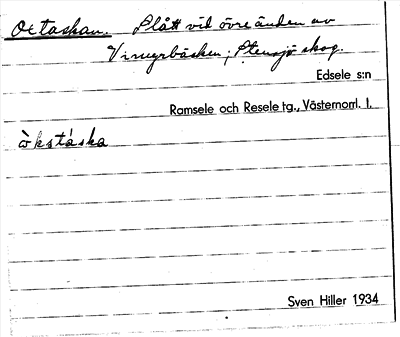 Octaskan. Slått vid övre änden av
Virmyrbäcken; Stensjö skog.
Edsele s:n
Ramsele och Resele tg., Västernorrl. l.
òkstáska
Sven Hiller 1934